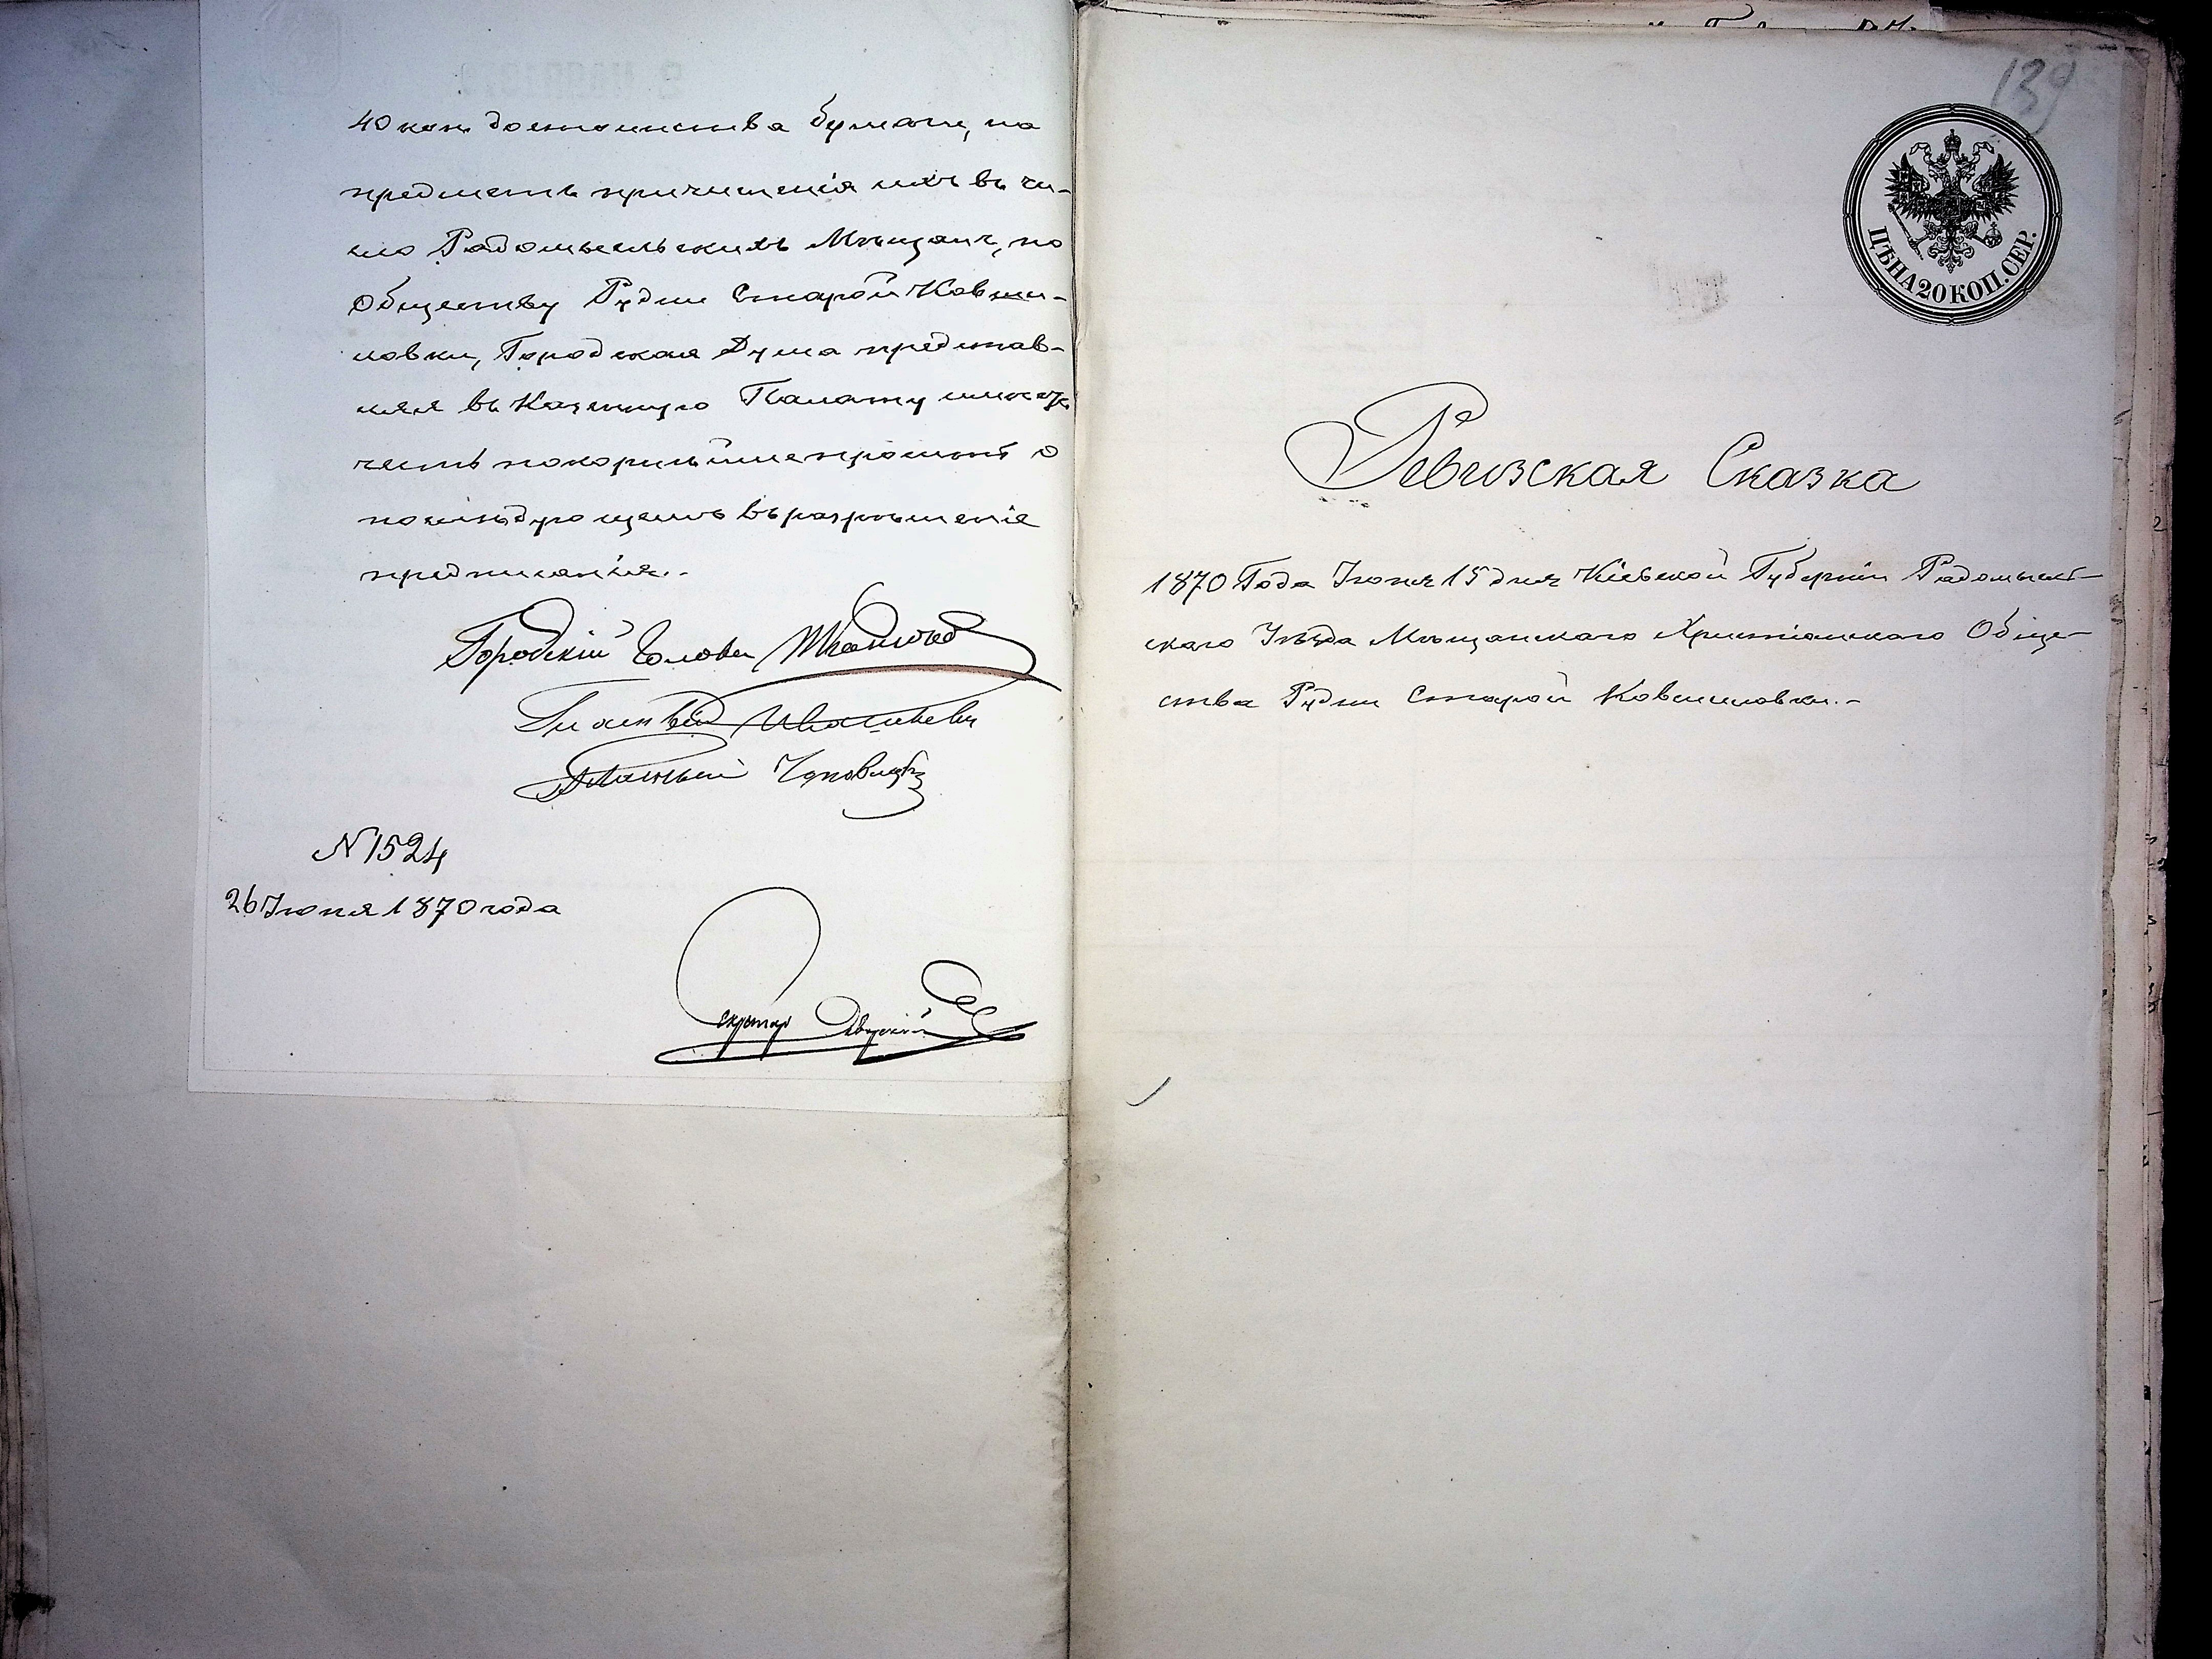 40 коп. достоинства бумаги, на
предметъ причисленія ихъ въ чи-
сло Радомысльскихъ Мѣщанъ, по
Обществу Рудни Старой Ковши-
ловки, Городская Дума представ-
ляя въ Казенную Палату имѣетъ
честь покорнѣйше просить о
послѣдующемъ въ разрѣшеніе
предписанія.-
Городскій Голова
Гласный
Гласный
N 1524
26 Іюня 1870 года
Секретарь
139
ЦѢНА 20 КОП. СЕР.
Ревизская Сказка
1870 Года Іюня 15 дня Кіевской Губерніи Радомысль-
скаго Уѣзда Мѣщанскаго Христіанскаго Обще-
ства Рудни Старой Ковшиловки.-